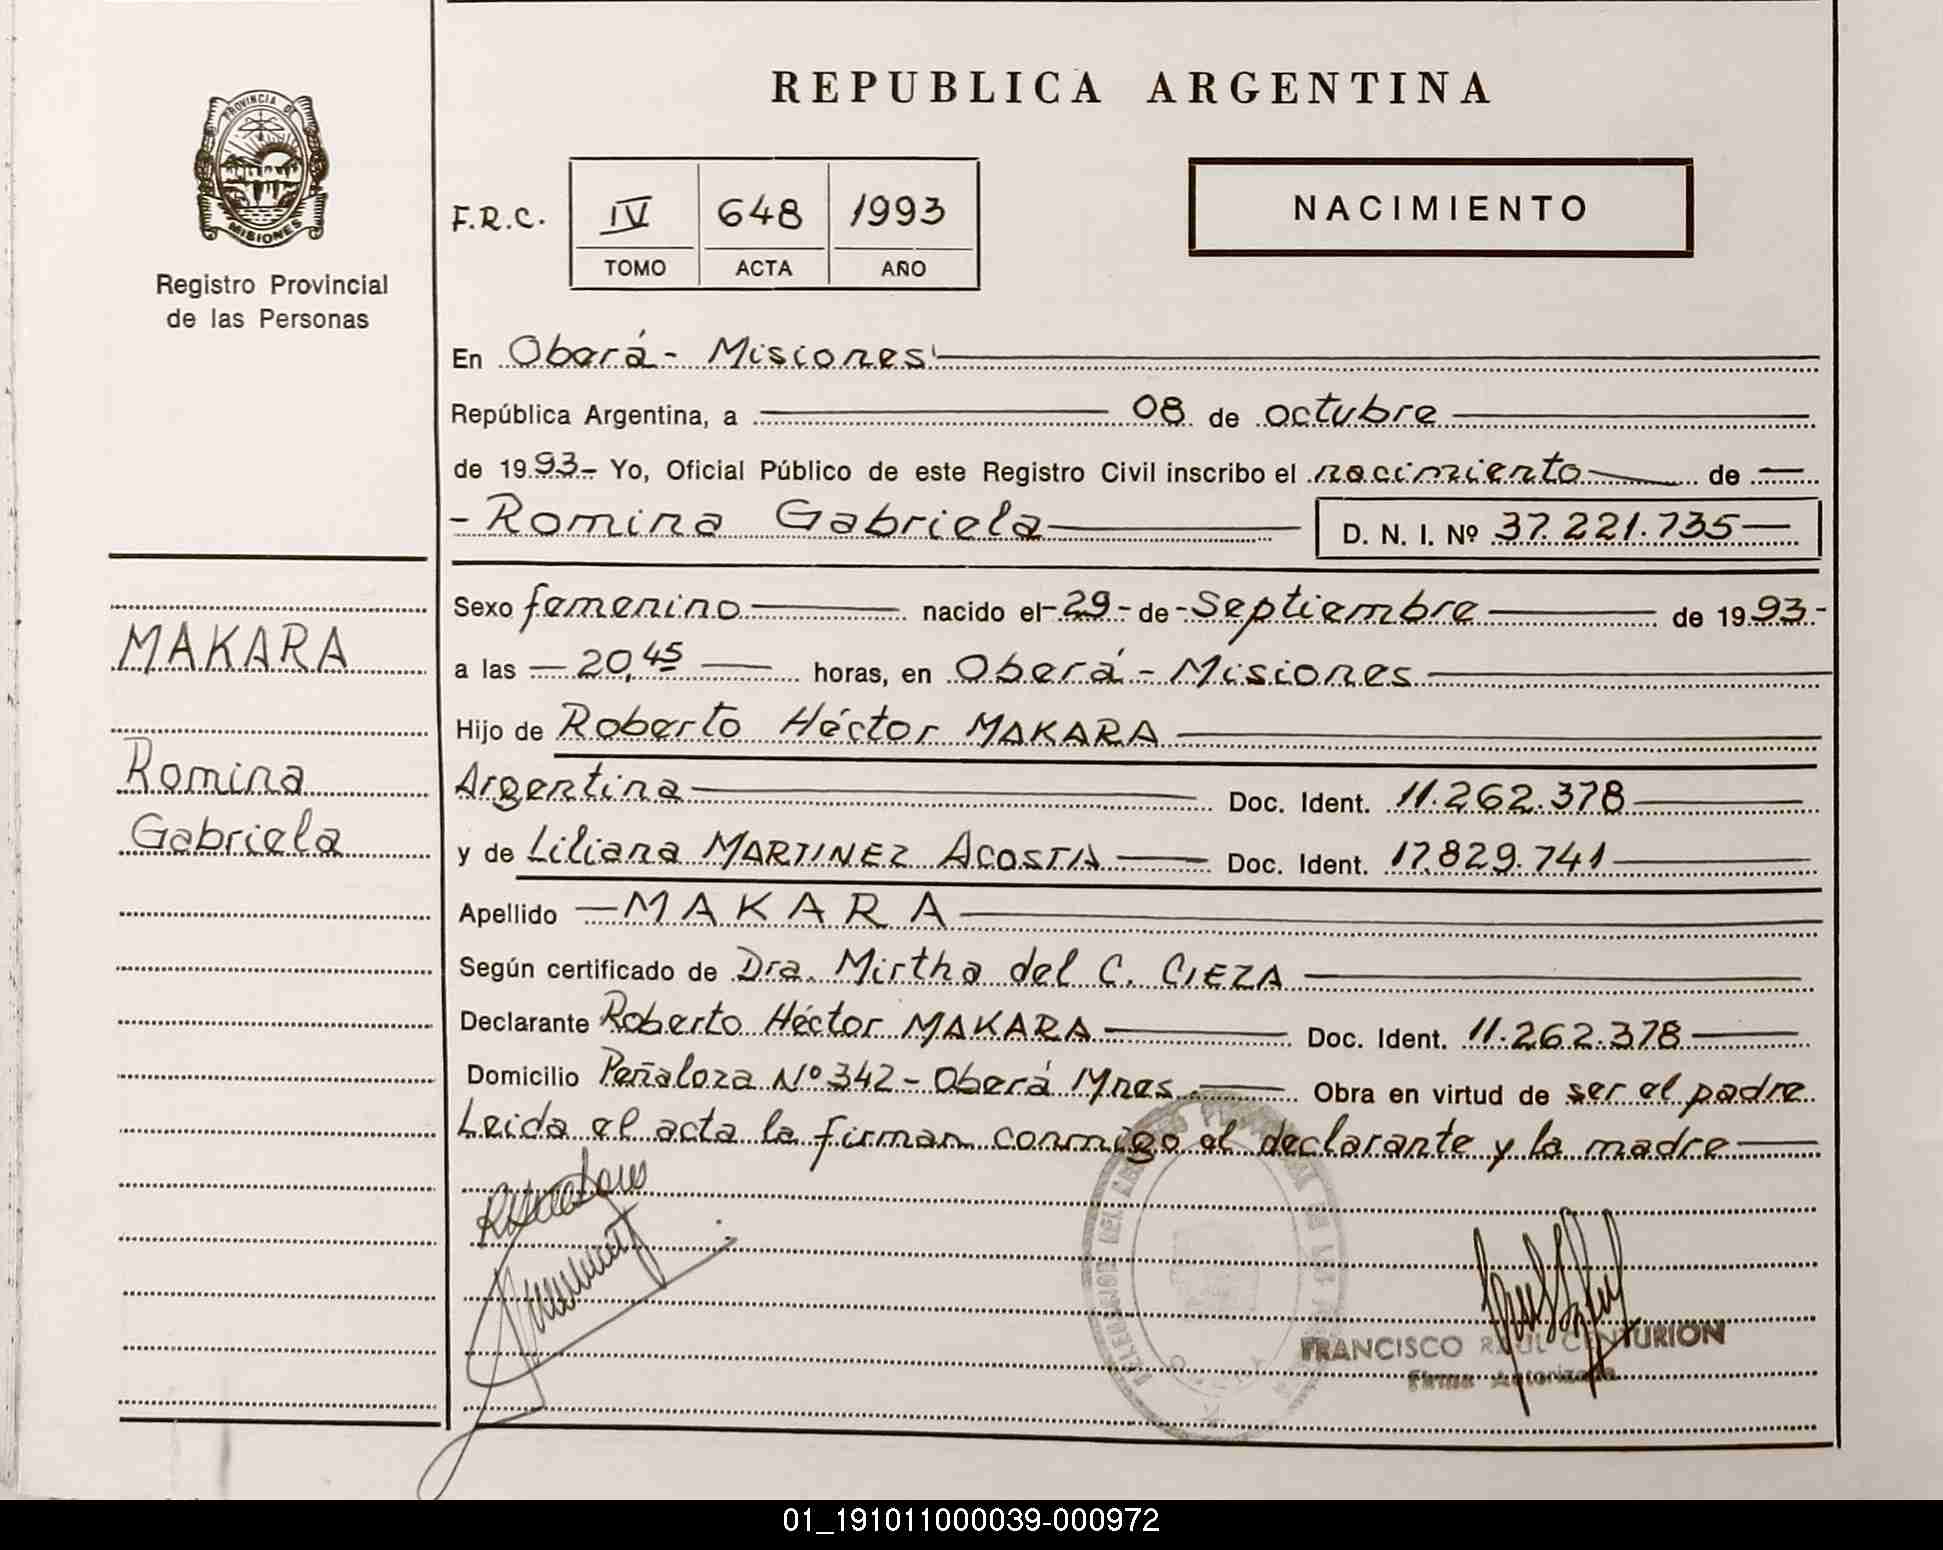 REPUBLICA ARGENTINA
PROVINCIA DE
MISIONES
Registro Provincial
de las Personas
F.R.C. IV 648 1993
TOMO ACTA AÑO
NACIMIENTO
En Oberá - Misiones
República Argentina, a 08 de octubre
de 1993- Yo, Oficial Público de este Registro Civil inscribo el nacimiento de
- Romina Gabriela D. N. I. Nº 37.221.735
MAKARA
Romina
Gabriela
Sexo femenino nacido el - 29 - de - Septiembre de 1993.-
a las 20,45 horas, en Oberá - Misiones
Hijo de Roberto Héctor MAKARA
Argentina Doc. Ident. 11.262.378
y de Liliana MARTINEZ ACOSTA Doc. Ident. 17.829.741
Apellido MAKARA
Según certificado de Dra. Mirtha del C. CIEZA
Declarante Roberto Héctor MAKARA Doc. Ident. 11.262.378
Domicilio Peñaloza Nº 342 - Oberá Mnes Obra en virtud de ser el padre
Leida el acta la firman conmigo el declarante y la madre
FRANCISCO RAUL CENTURION
Firma Autorizada
01_191011000039-000972